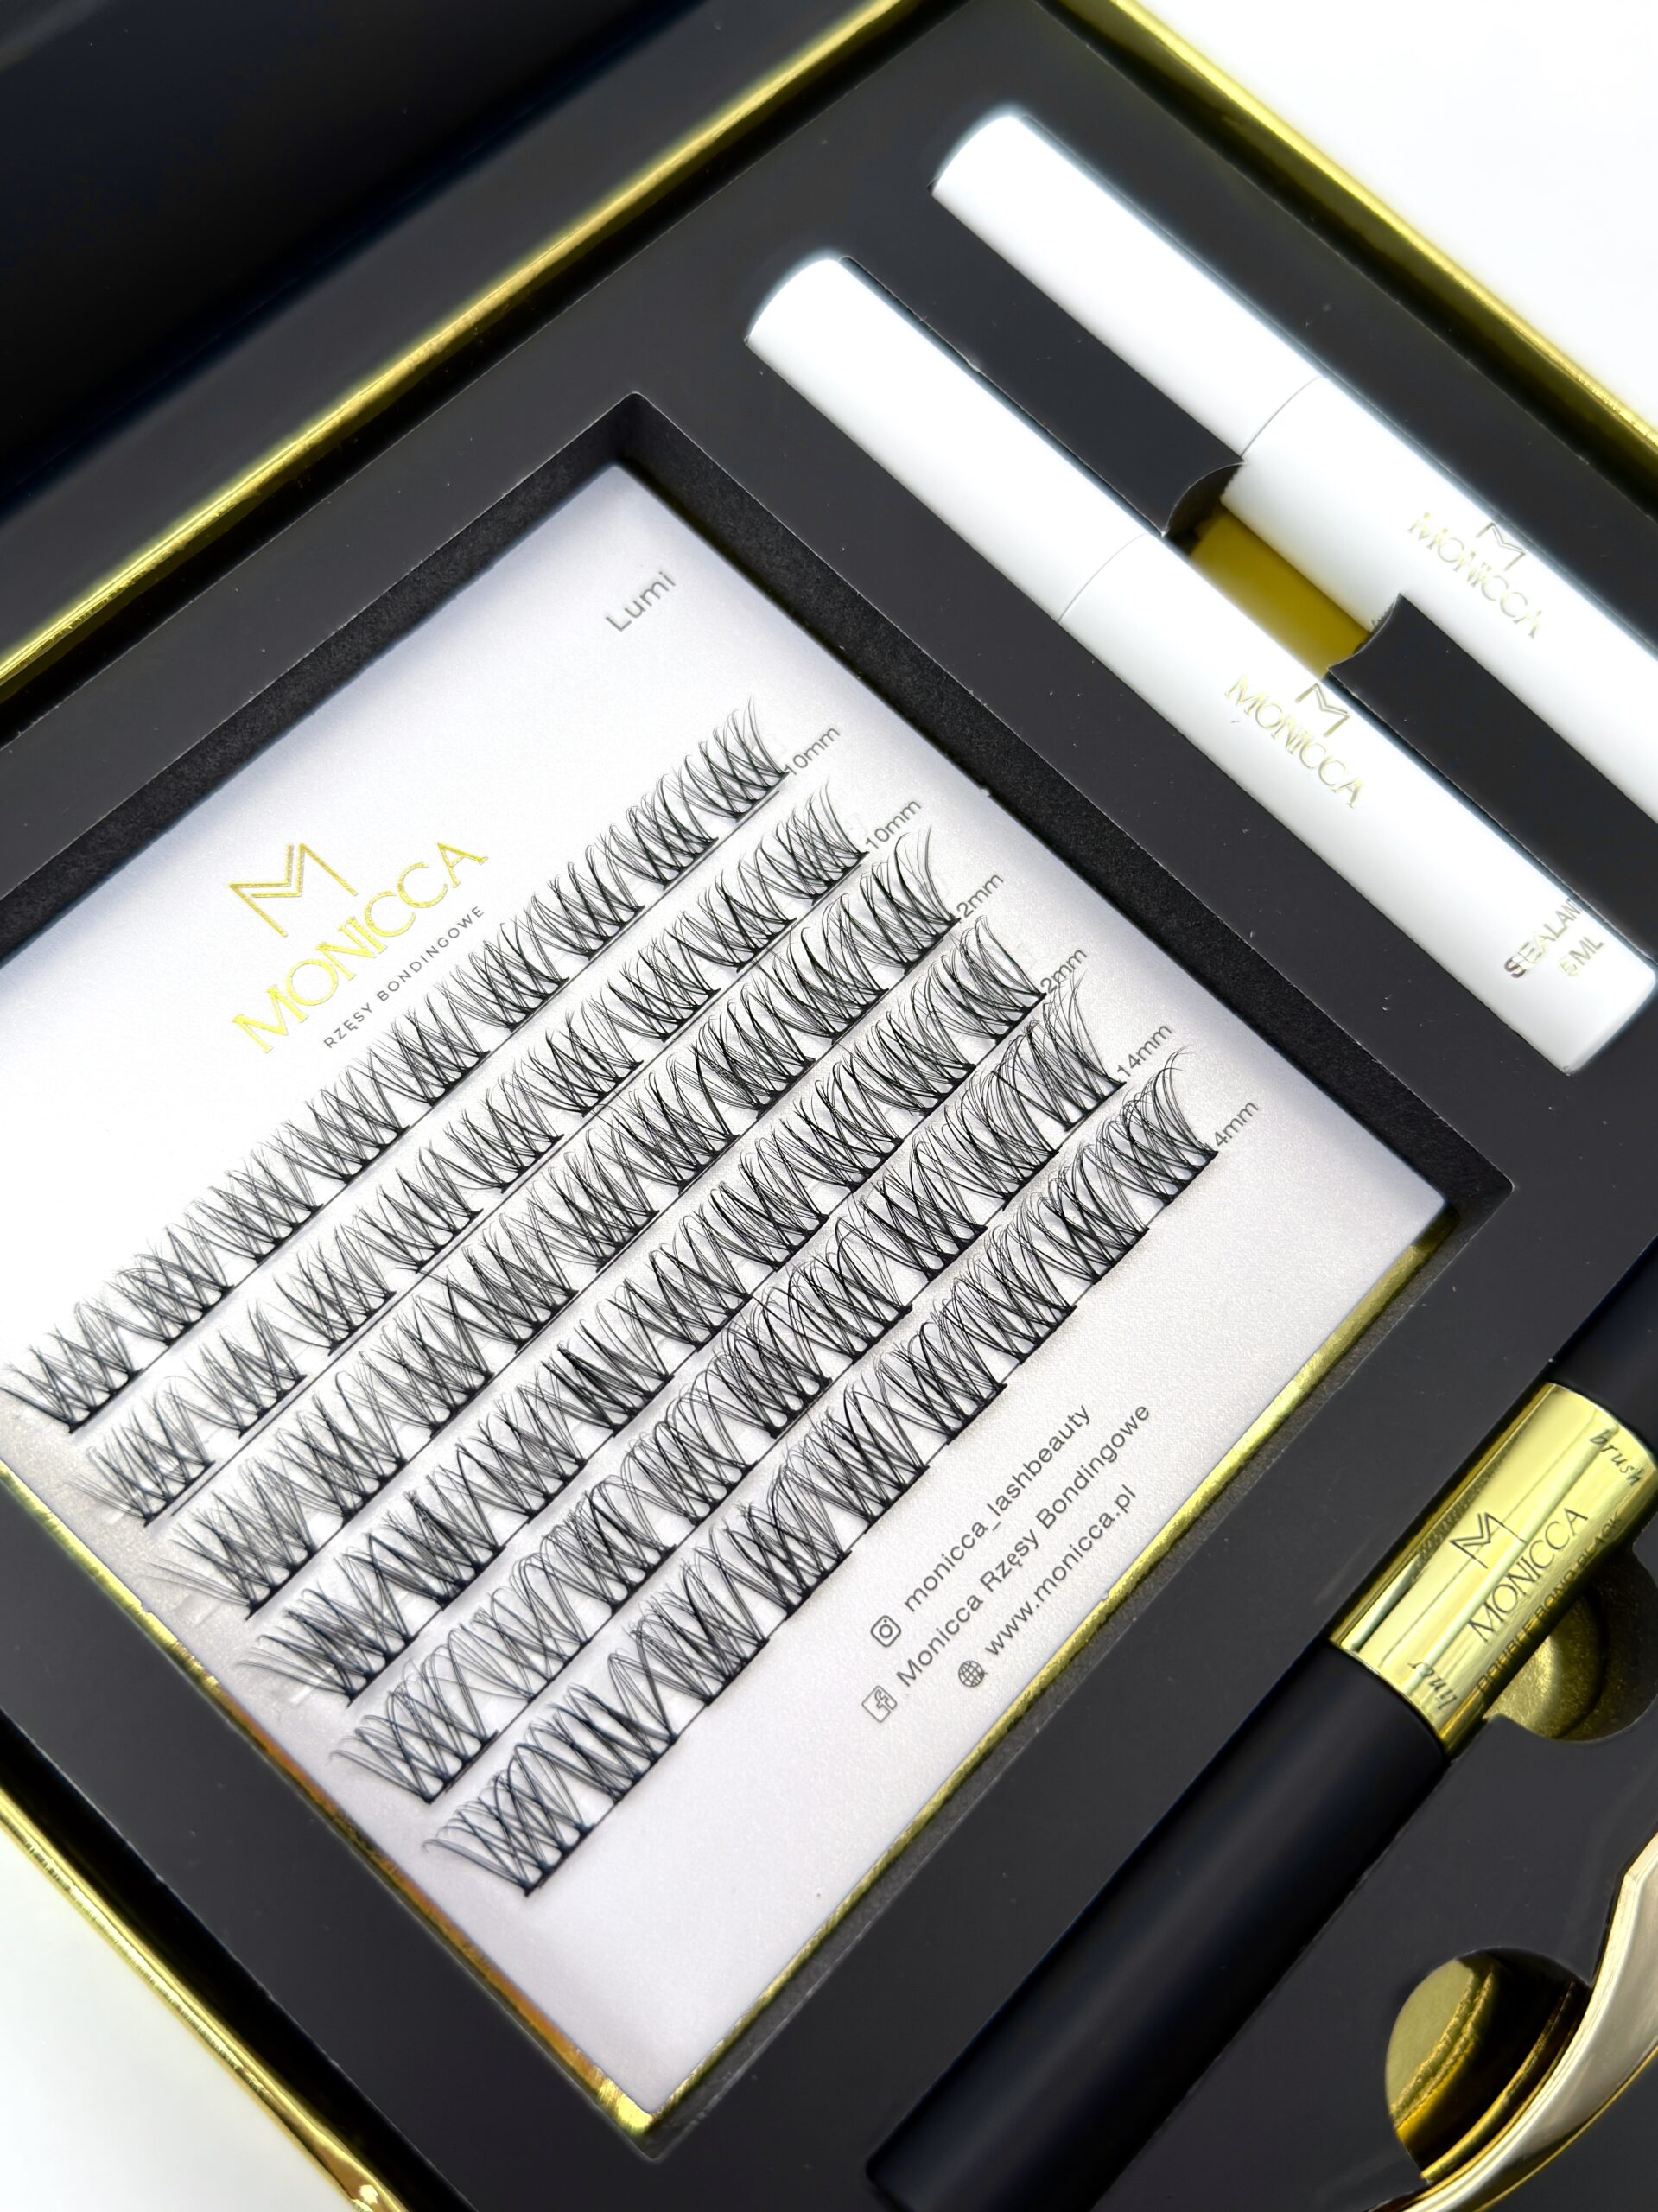 Lumi
MONICCA
RZĘSY BONDINGOWE
10mm
10mm
12mm
12mm
14mm
14mm
monicca_lashbeauty
Monicca Rzęsy Bondingowe
www.monicca.pl
MONICCA
MONICCA
SEALANT
5 ML
brush
MONICCA
liner